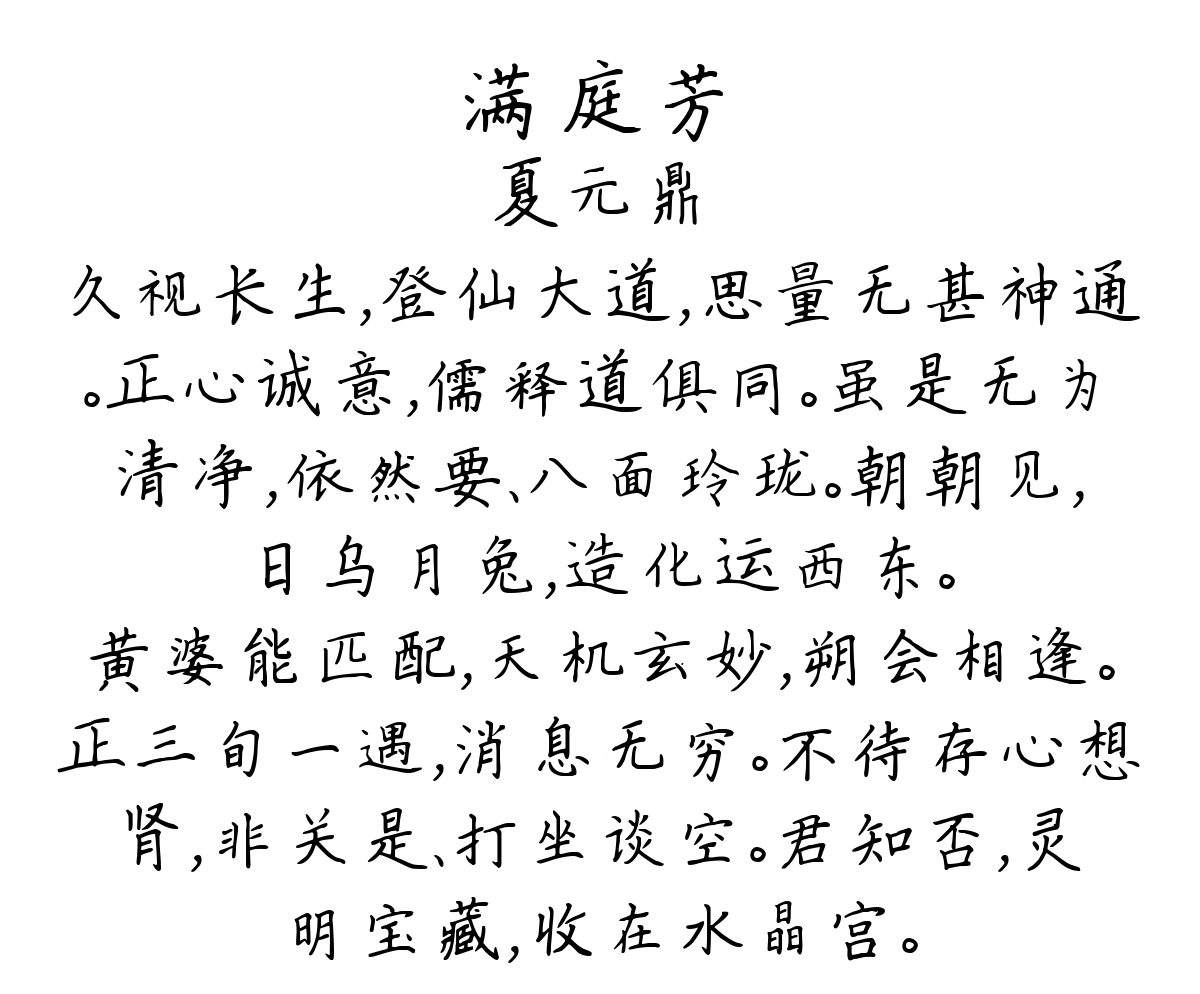 满庭芳
夏元鼎
久视长生,登仙大道,思量无甚神通
。正心诚意,儒释道俱同。虽是无为
清净,依然要、八面玲珑。朝朝见,
日乌月兔,造化运西东。
黄婆能匹配,天机玄妙,朔会相逢。
正三旬一遇,消息无穷。不待存心想
肾,非关是、打坐谈空。君知否,灵
明宝藏,收在水晶宫。